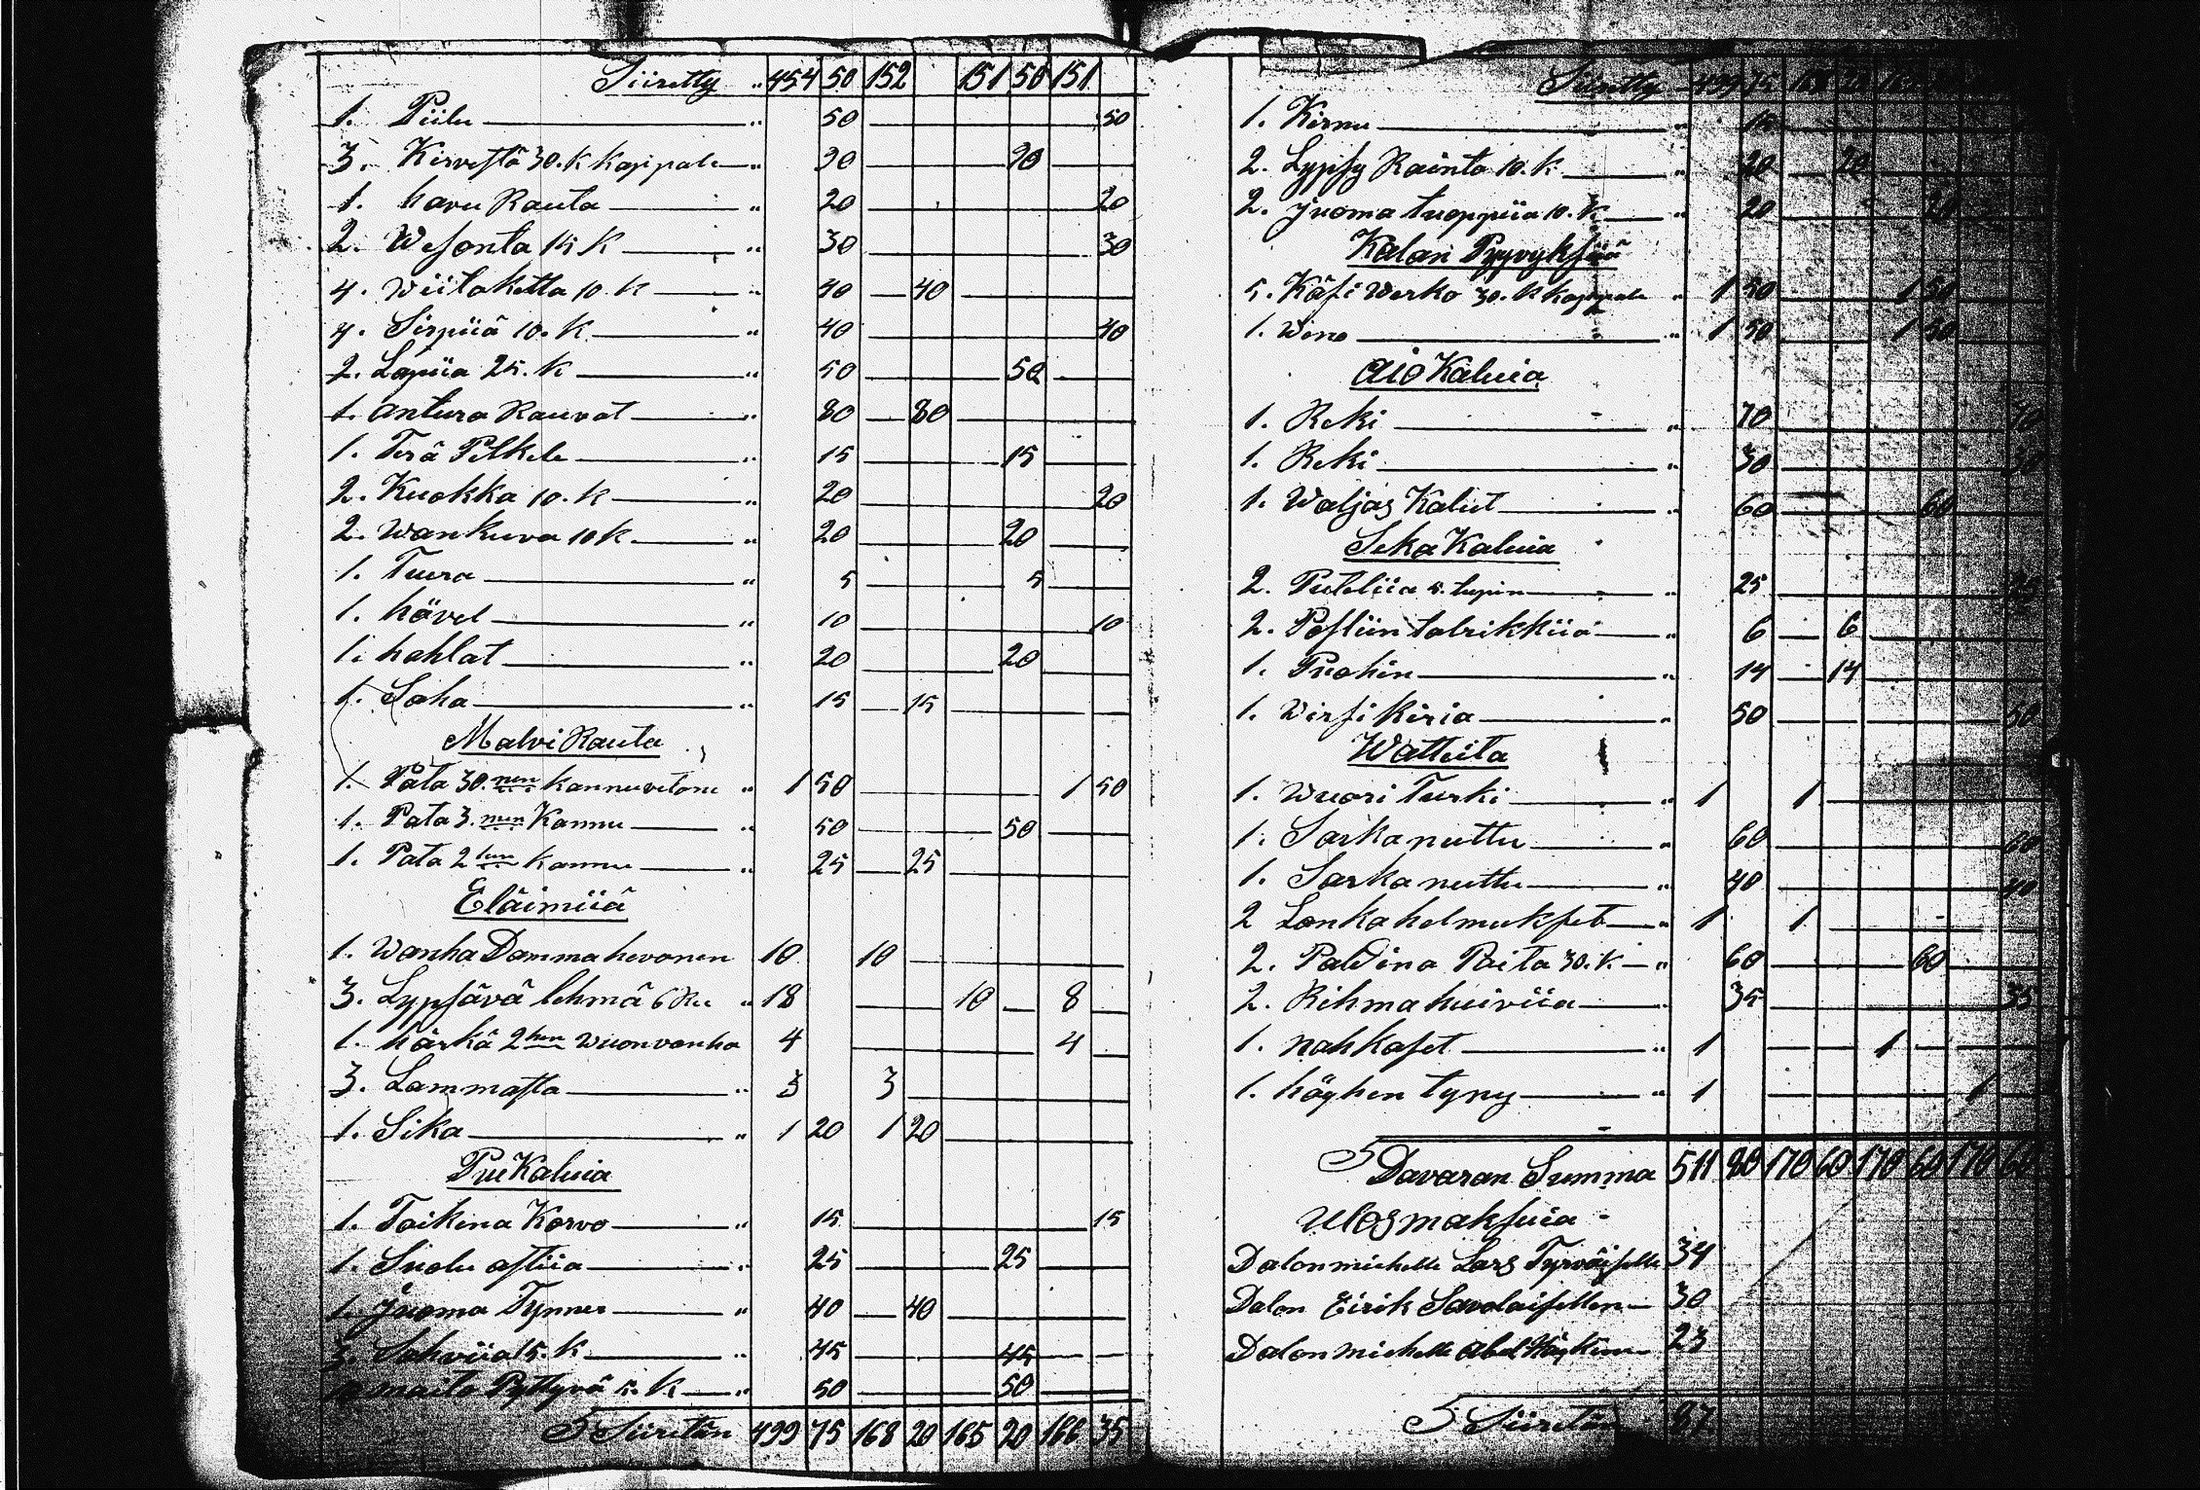 Siiretty " 454 50 152 151 50 151
1. Piilu " 50 50
3. Kirvestä 30. K kappale " 90 90
1. havu Rauta " 20 20
2. Wesonta 15 K " 30 30
4. Wiitaketta 10. K " 40 40
4. Sirpiiä 10. K " 40 40
2. Lapiia 25. K " 50 50
1. antura Rauvat " 80 80
1. Terä Pelkele " 15 15
2. Kuokka 10. K " 20 20
2. Wankuva 10 K " 20 20
1. Tuura " 5 5
1. hövel " 10 10
1. hahlat " 20 20
1. Saha " 15 15
Malvi Rauta
1. Pata 30. nen kannuvetone " 1 50 1 50
1. Pata 3. men Kannu " 50 50
1. Pata 2 hen kannu " 25 25
Eläimiiä
1. Wanha Damma hevonen 10 10
3. Lypsävä lehmä 6 Ru " 18 10 8
1. härkä 2 hen Wuon vanha 4 4
3. Lammasta " 3 3
1. Sika " 1 20 1 20
Pue Kaluia
1. Taikina Korvo " 15 15
1. Suolu astiia " 25 25
1. Juoma Tynner " 40 40
3. Sahviia 15. K " 45 45
maito Pyttyvä 5. K " 50 50
S Siiretän 499 75 168 20 165 20 166 35
Siiretty 499 75 168 20
1. Kirnu " 15
2. Lypsy Rainta 10. K " 20 20
2. Juoma tuoppiia 10. K " 20 20
Kalan Pyyvyksiiä
5. Käsi Werko 30. K kappale " 1 50 1 50
1. Weno " 1 50 1 50
aio Kaluia
1. Reki " 70 70
1. Reki " 30 30
1. Waljas Kalut " 60 60
Seka Kaluia
2. Puteliia 5. tupin " 25 25
2. Posliin talrikkiia " 6 6
1. Puohin " 14 14
1. Wirsi kiria " 50 50
Watteita
1. Wuori Turki " 1 1
1. Sarka nuttu " 60 60
1. Sarka nuttu " 40 40
2 Lanka helmukset " 1 1
2. Paldina Paita 30. K " 60 60
2. Rihma huiviia " 35 35
1. nahkaset " 1 1
1. höyhen tyny " 1 1
S Davaran Summa 511 80 170 60 170 60 170 60
Ulos maksuia
Dalon miehelle Lars Tyrväiselle 34
Dalon Eirik Savolaisellen 30
Dalon miehelle Abel 23
S Siiretän 87